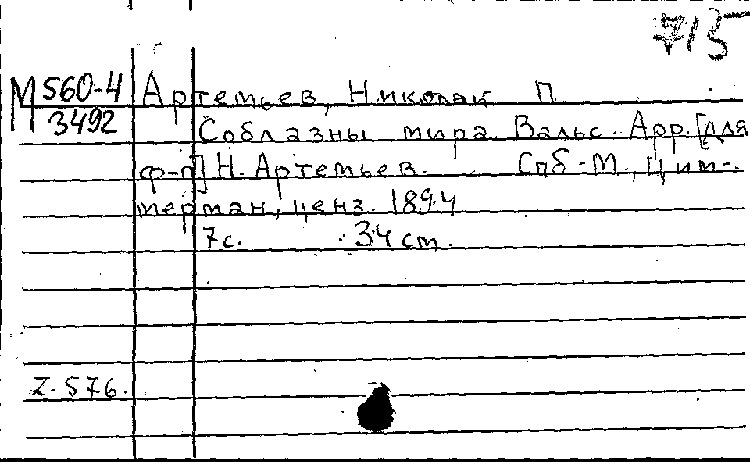 715
М 560-4
3492
Артемьев, Николай П.
Соблазны мира. Вальс. Арр. [для
ф-п] Н. Артемьев. Спб-М, Цим-
мерман, ценз. 1894
7с. 34 см.
Z. 576.